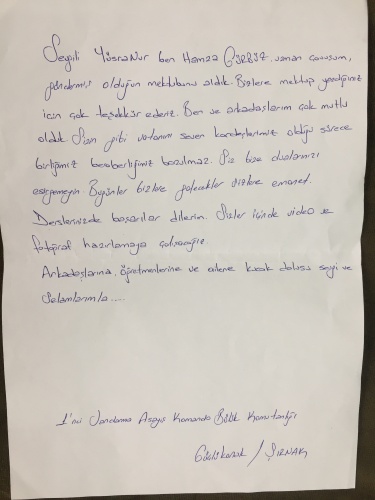 Sevgili YüsraNur ben Hamza GÜRBÜZ uzman çavuşum,
göndermiş olduğun mektubunu aldık. Bizlere mektup yazdığınız
için çok teşekkür ederiz. Ben ve arkadaşlarım çok mutlu
olduk Sizin gibi vatanını seven kardeşlerimiz olduğu sürece
birliğimiz beraberliğimiz bozulmaz. Siz bize dualarınızı
esirgemeyin Bugünler bizlere gelecekler sizlere emanet.
Derslerinizde başarılar dilerim. Sizler içinde video ve
fotoğraf hazırlamaya çalışacağız.
Arkadaşlarına, öğretmenlerine ve ailene kucak dolusu sevgi ve
Selamlarımla....
1'nci Jandarma Asayiş Komando Bölük Komutanlığı
/ ŞIRNAK